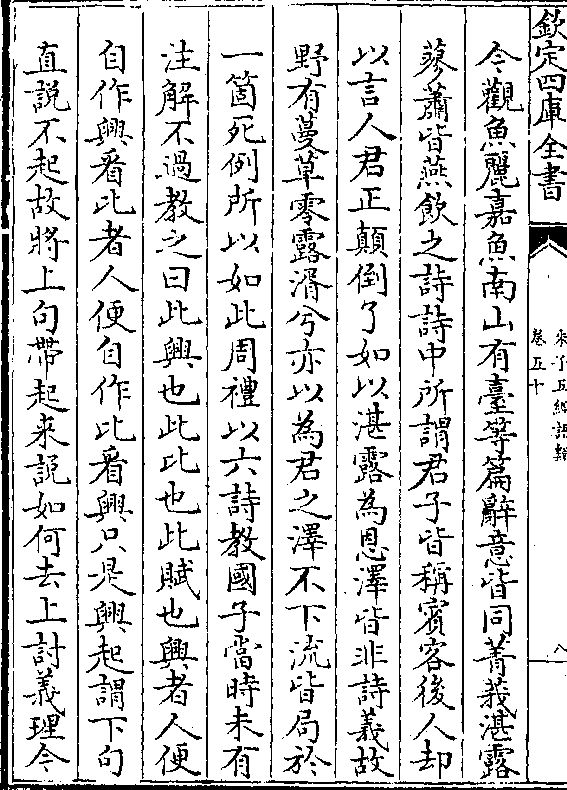 欽定四庫全書
朱子五經語類
卷五十
八
今觀魚麗嘉魚南山有臺等篇辭意皆同菁莪湛露
蓼蕭皆燕飲之詩詩中所謂君子皆稱賓客後人却
以言人君正顛倒了如以湛露為恩澤皆非詩義故
野有蔓草零露湑兮亦以為君之澤不下流皆局於
一箇死例所以如此周禮以六詩教國子當時未有
注解不過教之曰此興也此比也此賦也興者人便
自作興看比者人便自作比看興只是興起謂下句
直說不起故將上句帶起來說如何去上討義理今